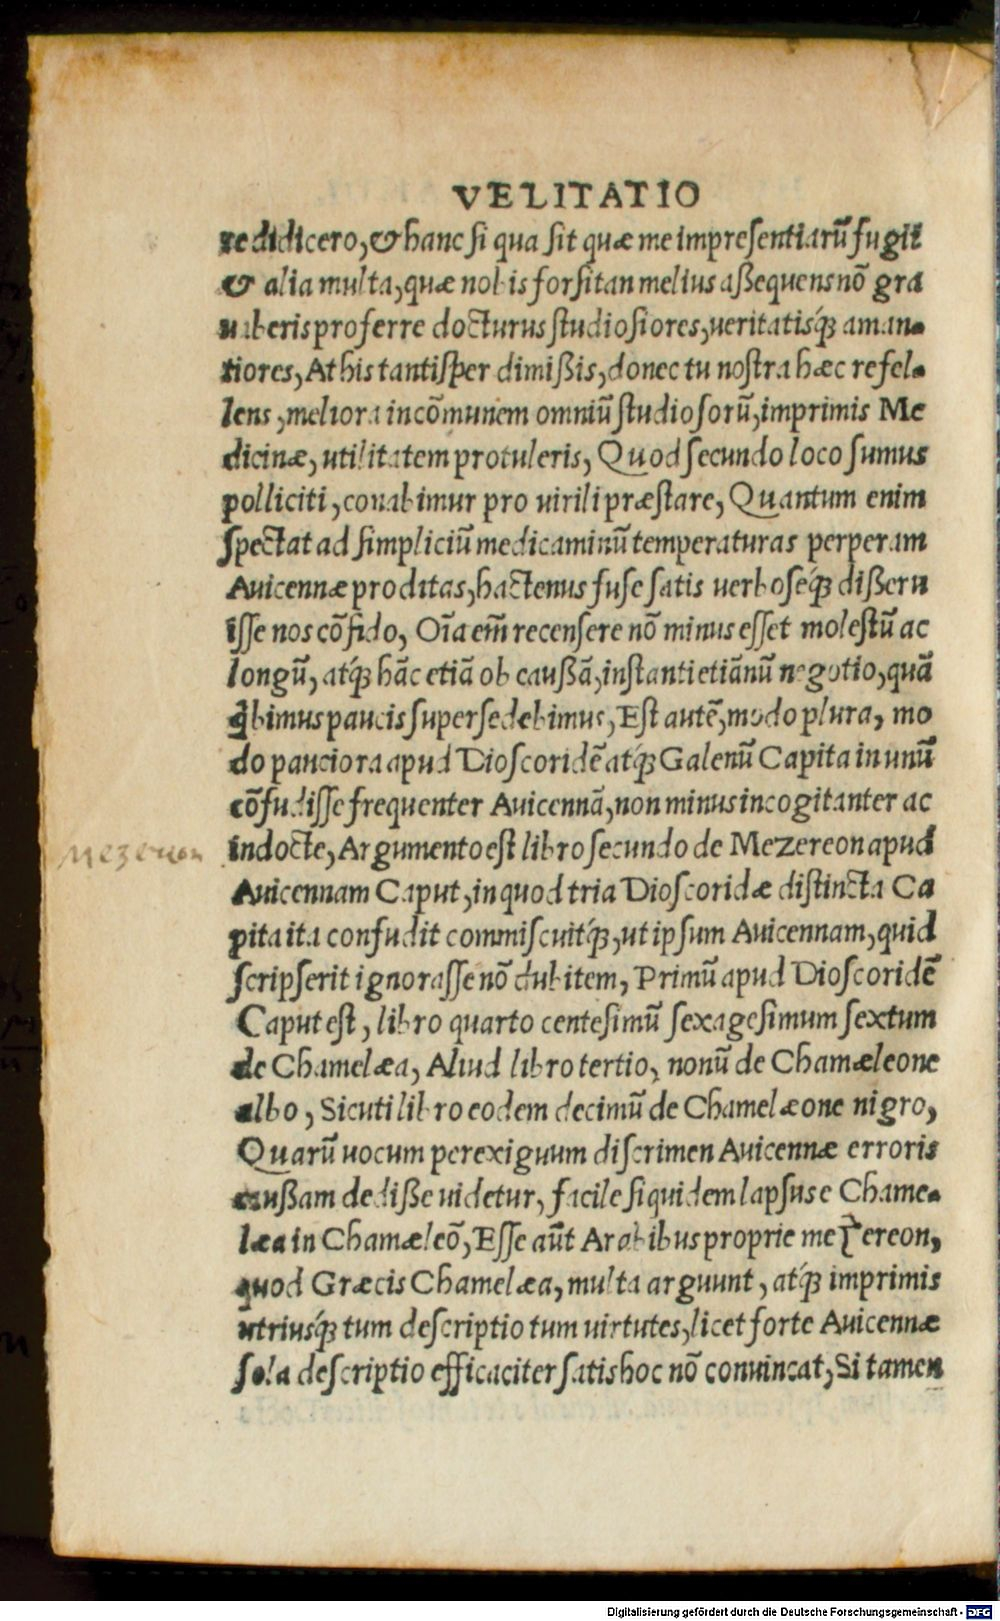 VELITATIO
re didicero, & hanc si qua sit quæ me impresentiarū fugit
& alia multa, quæ nobis forsitan melius aßequens nō gra
uaberis proferre docturus studiosiores, ueritatisq́; aman-
tiores, At his tantisper dimißis, donec tu nostra hæc refel-
lens, meliora in cōmunem omniū studiosorū, imprimis Me
dicinæ, utilitatem protuleris, Quod secundo loco sumus
polliciti, conabimur pro uirili præstare, Quantum enim
spectat ad simpliciū medicaminū temperaturas perperam
Auicennæ proditas, hactenus fuse satis uerboseq́; dißeru
isse nos cōfido, Oīa em̄ recensere nō minus esset molestū ac
longū, atq́; hāc etiā ob caußā, instanti etiānū negotio, quā
q̄bimus paucis supersedebimus, Est autē, modo plura, mo
do pauciora apud Dioscoridē atq́; Galenū Capita in unū
cōfudisse frequenter Auicennā, non minus incogitanter ac
indocte, Argumento est libro secundo de Mezereon apud
Mezereon
Auicennam Caput, in quod tria Dioscoridæ distincta Ca
pita ita confudit commiscuitq́;, ut ipsum Auicennam, quid
scripserit ignorasse nō dubitem, Primū apud Dioscoridē
Caput est, libro quarto centesimū sexagesimum sextum
de Chamelæa, Aliud libro tertio, nonū de Chamæleone
albo, Sicuti libro eodem decimū de Chamelæone nigro,
Quarū uocum perexiguum discrimen Auicennæ erroris
caußam dediße uidetur, facile siquidem lapsus e Chame-
læa in Chamæleō, Esse aūt Arabibus proprie mezereon,
quod Græcis Chamelæa, multa arguunt, atq́; imprimis
utriusq́; tum descriptio tum uirtutes, licet forte Auicennæ
sola descriptio efficaciter satis hoc nō conuincat, Si tamen
Digitalisierung gefördert durch die Deutsche Forschungsgemeinschaft - DFG